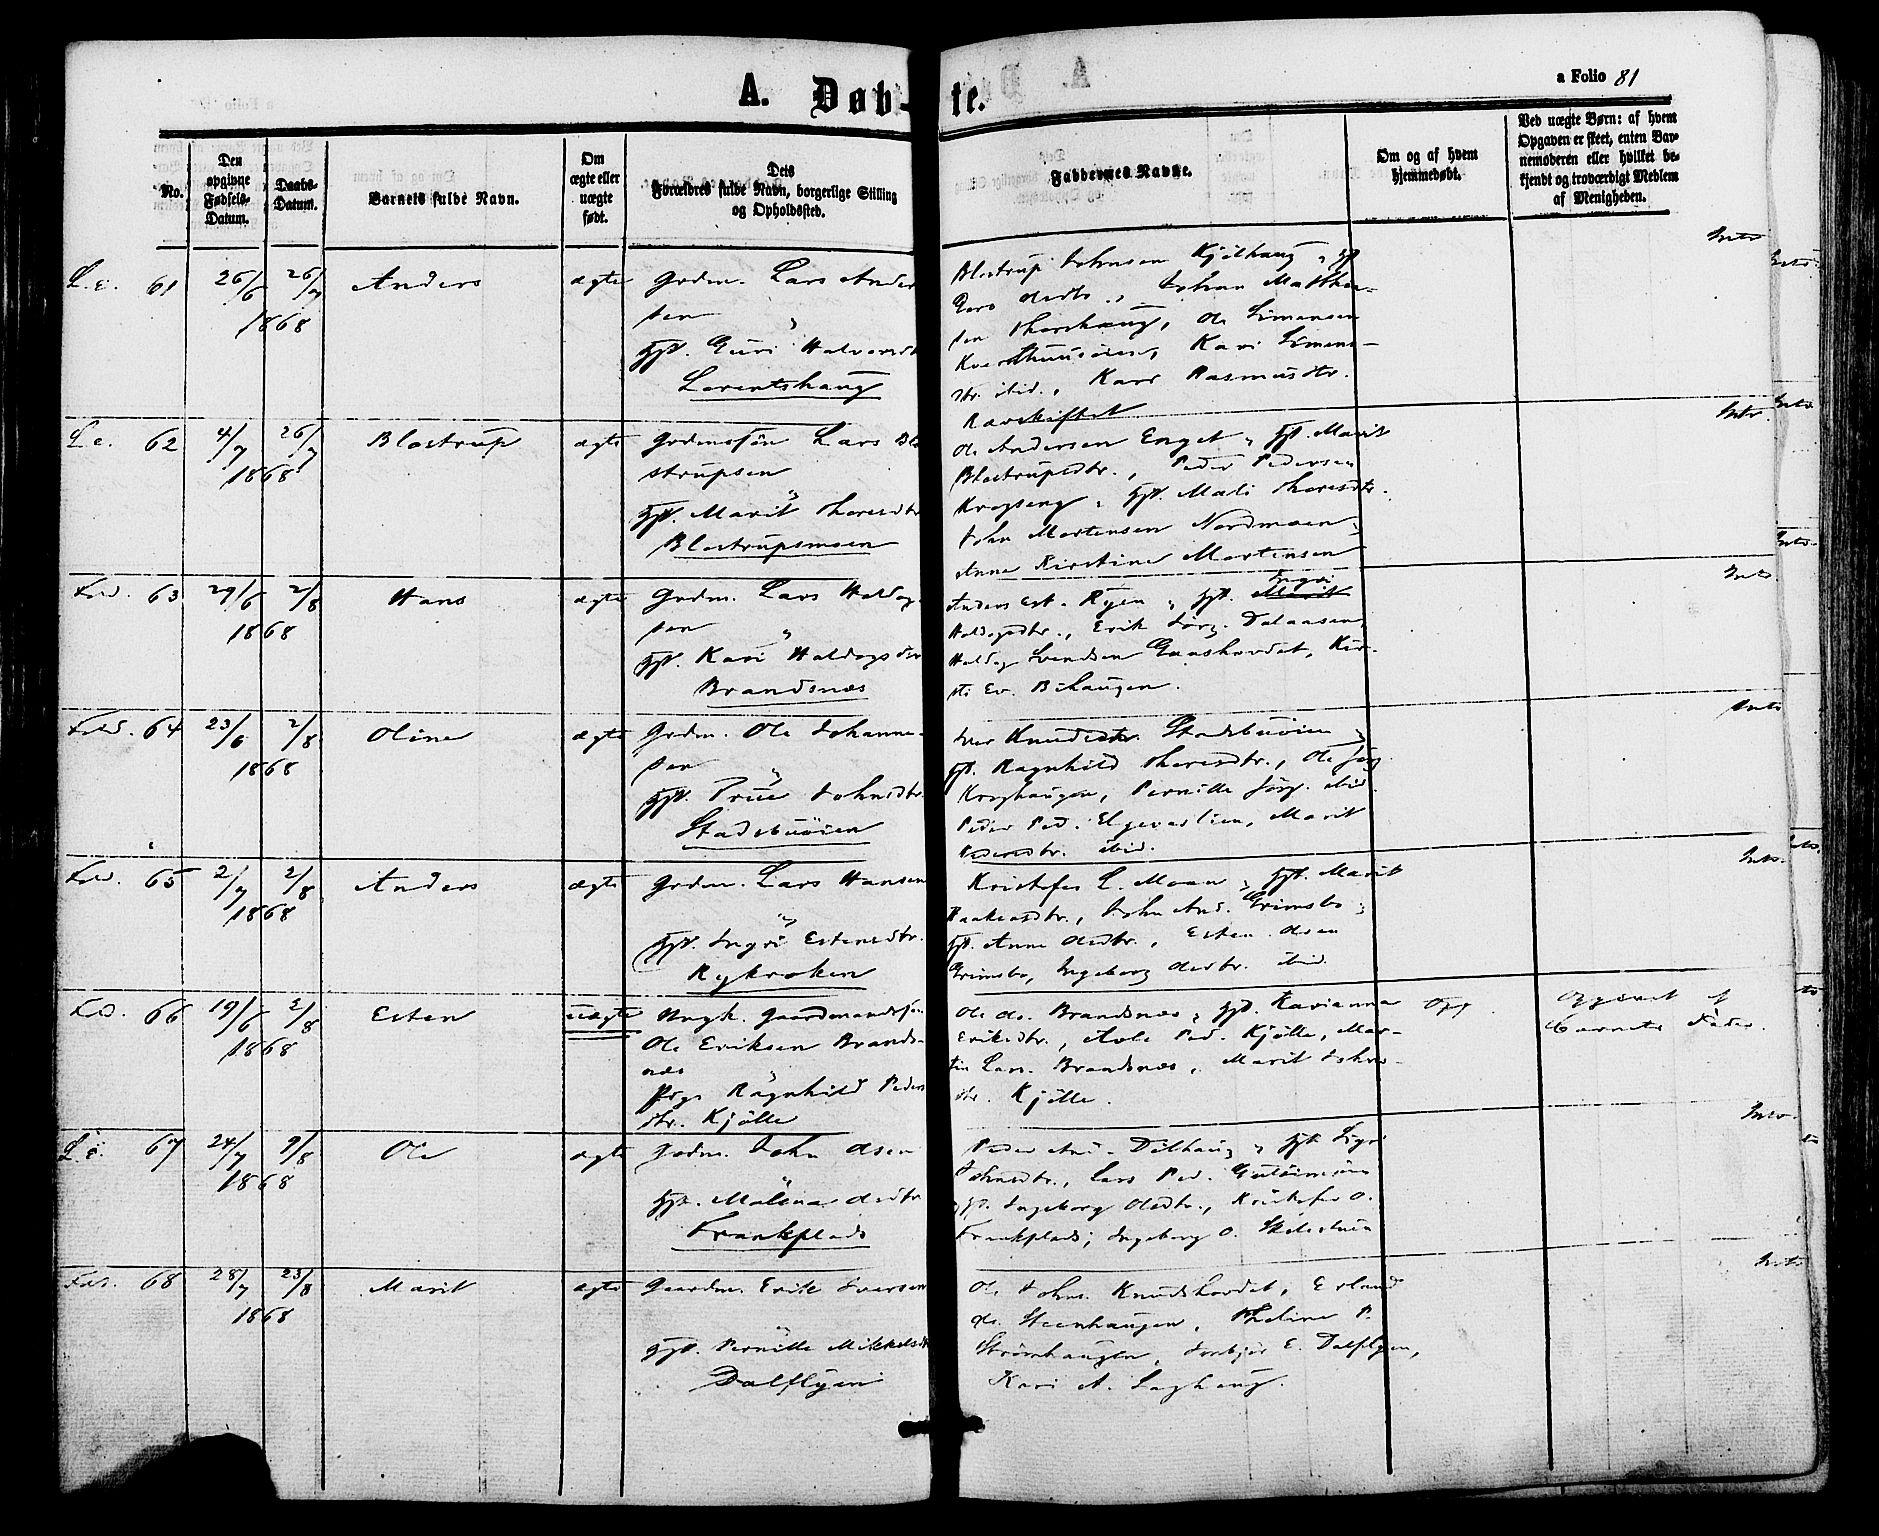 A. Døb-te.
a Folio 81
No.
Den opgivne Fødsels-Datum.
Daabs-Datum.
Barnets fulde Navn.
Om ægte eller uægte født.
Dets Forældres fulde Navn, borgerlige Stilling og Opholdssted.
Faddernes Navne.
Om og af hvem hjemmedøbt.
Ved uægte Børn: af hvem Opgaven er skeet, enten Barnemoderen eller hvilket bekjendt og troværdigt Medlem af Menigheden.
61 26/6 26/7 1868 Anders ægte Grdm. Lars Ander
sen
Hst. Guri Halvorsdt
Lorentshaug
Johan Matthe-
sen Thorshaug, Ole Simensen
Kari Simens-
dtr. ibid., Kari Rasmusdtr.
62 4/7 26/7 1868 Blostrup ægte Grdmssøn Lars Blo
strupsen
Marit Thoresdtr
Blostrupsmoen
Ole Andersen Enget, Marit
Blostrupsdtr., Peder Pedersen
Krogseng, Mali Thoresdtr.
John Mortensen Nordmoen,
Anne Kirstine Mortensen
63 29/6 2/8 1868 Hans ægte Grdm. Lars Haldog-
sen
Kari Haldogsdtr
Brandsnæs
Anders Est. Ryen, Ingri
Haldogsdtr., Erik Jørg. Dalaasen,
Haldog Svendsen Gaashovdet, Kir-
sti Ev. Bihaugen.
64 23/6 2/8 1868 Oline ægte Grdm. Ole Johanne-
sen
Prue Johnsdtr.
Stadsbuøien
Iver Knudsen Stadsbuøien,
Ragnhild Thoresdtr., Ole Jørg.
Kroghaugen, Pernille Jørg. ibid.
Peder Ped. Elgevaslien, Marit
Pedersdtr. ibid.
65 2/7 2/8 1868 Anders ægte Grdm. Lars Hansen
Ingri Estensdtr.
Rykroken
Kristofer L. Moan, Marit
Haakensdtr., John And. Grimsbo,
Anne Olsdtr., Esten Olsen
Grimsbo, Ingeborg Olsdtr. ibid.
66 19/6 2/8 1868 Esten uægte Ungk. Gaardmandssøn
Ole Eriksen Brands-
næs
Pige Ragnhild Peders
dtr. Kjølle
Ole Ols. Brandsnæs, Karianna
Eriksdtr., Ped. Kjølle, Mar-
tin Lars. Brandsnæs, Marit Johns-
dtr. Kjølle.
Opgivet af
Barnets Fader.
67 24/7 9/8 1868 Ole ægte Grdm. John Olsen
Hst. Mølena Olsdtr
Frankplads
Peder And. Dølhaug, Sigri
Johnsdtr., Lars Ped.
Ingeborg Olsdtr., Kristofer O.
Frankplads, Ingeborg O.
68 28/7 23/8 1868 Marit ægte Gaardm. Erik Iversen
Pernille Mikkelsdt
Dalflyen
Ole Johns. Knudshovdet, Erland
Ols. Steenhaugen, Theline P.
Strømhaugen, E. Dalflyen,
Kari A. Laghaug.